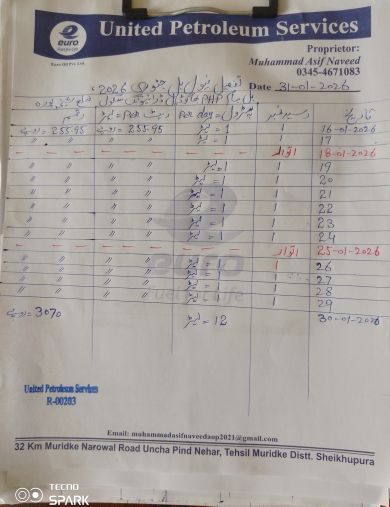 United Petroleum Services
euro
Fuel for Life
Euro Oil Pvt. Ltd.
Proprietor:
Muhammad Asif Naveed
0345-4671083
تفصیل پٹرول بل جنوری 2026ء
Date 31-01-2026
تاریخ رسید نمبر Per day = لیٹر رقم
16-01-2026 1 1 = لیٹر 255.95 = روپے 255.95 = روپے
17 1 1 = لیٹر 〃 〃 〃 〃
18-01-2026 اتوار — — — — — —
19 1 1 = لیٹر 〃 〃 〃 〃
20 1 1 = لیٹر 〃 〃 〃 〃
21 1 1 = لیٹر 〃 〃 〃 〃
22 1 1 = لیٹر 〃 〃 〃 〃
23 1 1 = لیٹر 〃 〃 〃 〃
24 1 1 = لیٹر 〃 〃 〃 〃
25-01-2026 اتوار — — — — — —
26 1 1 = لیٹر 〃 〃 〃 〃
27 1 1 = لیٹر 〃 〃 〃 〃
28 1 1 = لیٹر 〃 〃 〃 〃
29 1 1 = لیٹر 〃 〃 〃 〃
30-01-2026 1 12 = لیٹر 3070 = روپے
euro
Fuel for Life
United Petroleum Services
R-00203
Email: muhammadasifnaveedaop2021@gmail.com
32 Km Muridke Narowal Road Uncha Pind Nehar, Tehsil Muridke Distt. Sheikhupura
TECNO
SPARK